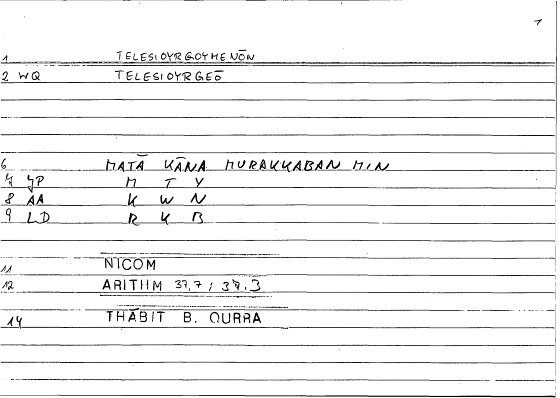 1
1 TELESIOYRGOYMENŌN
2 WQ TELESIOYRGEŌ
6 MATĀ KĀNA MURAKKABAN MIN
7 JP M T Y
8 AA K W N
9 LD R K B
11 NICOM
12 ARITHM 37,7; 37.3
14 THĀBIT B. QURRA